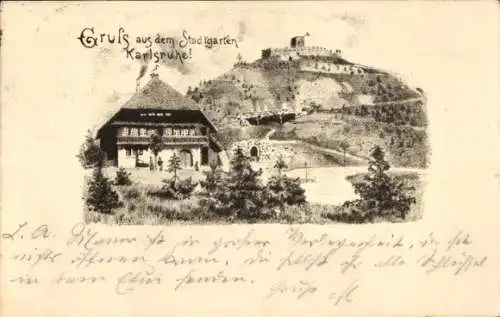 Gruß aus dem Stadtgarten
Karlsruhe!
L. A. Mama ist in großer Verlegenheit, da sie
nichts öffnen kann, die sollst ihr alle Schlüssel
in dem Etui senden. Gruß